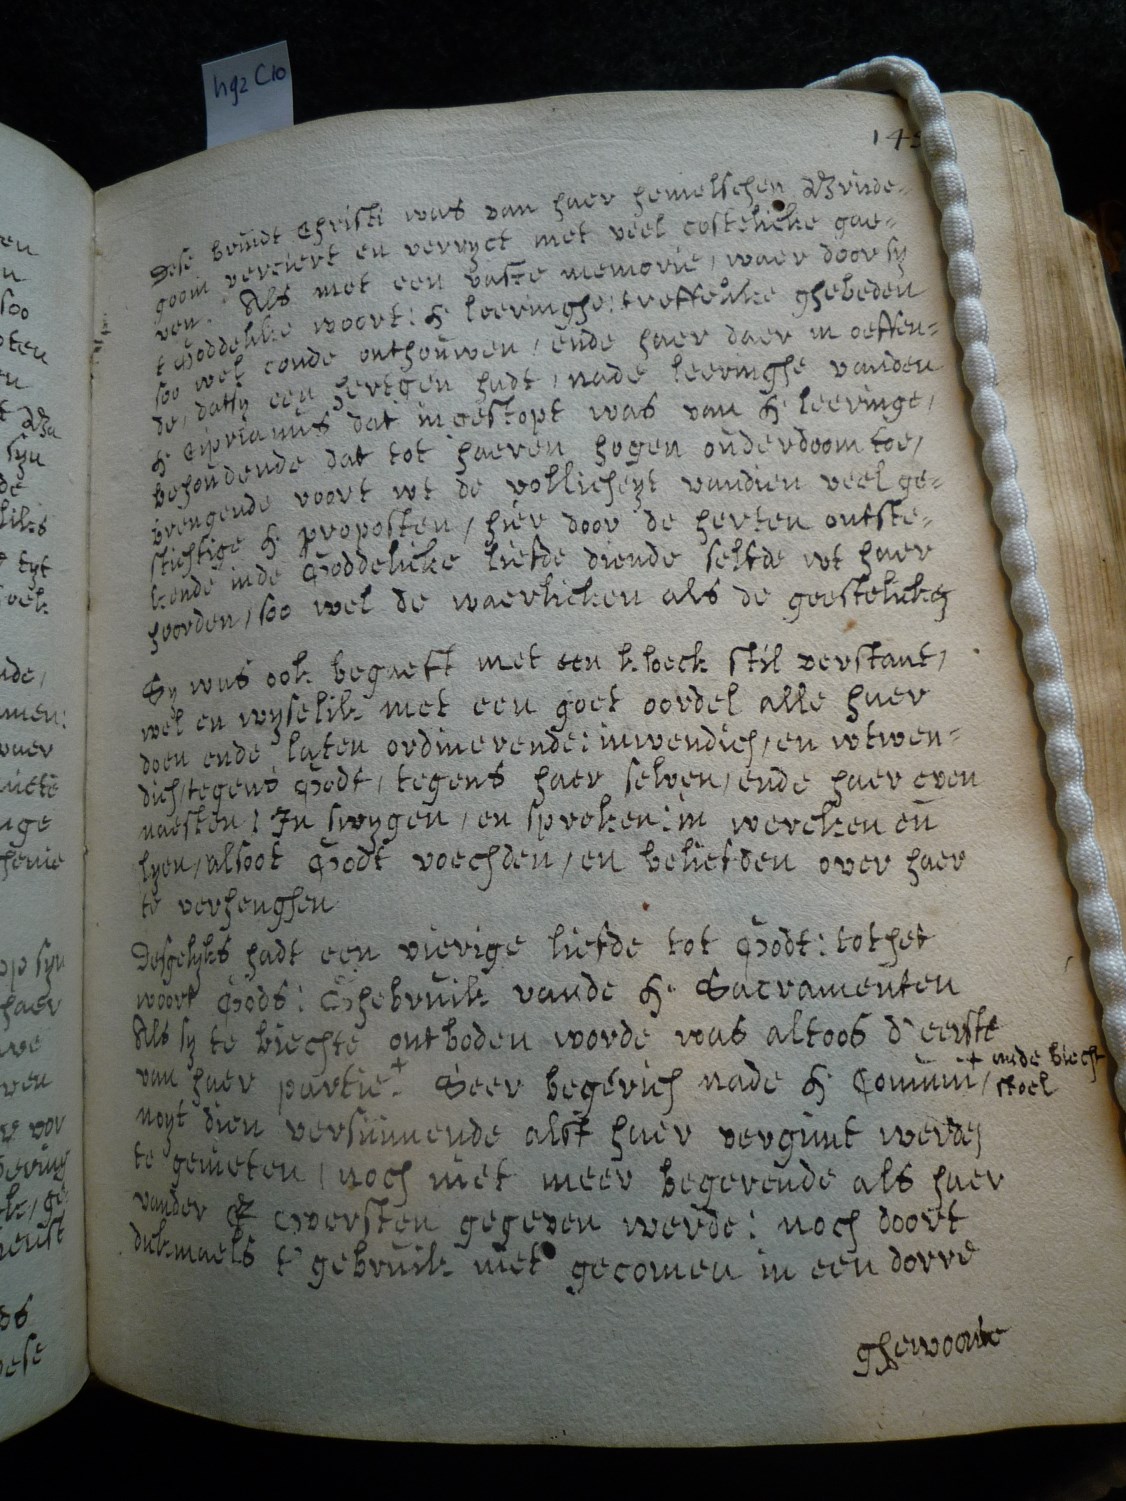 hgz C10
14
Dese bruidt Christi was van haer hemelschen Bruide-
goom verciert en verryct met veel costelicke gae-
ven. Als met een vaste memorie, waer door sy
t Goddelike woort: H leeringhe: treffelike ghebeden
soo wel conde onthouwen, ende haer daer in oeffen-
de, datsy een hertgen hadt, nade leeringhe vanden
H Ciprianus dat ingestopt was van H leeringe,
behoudende dat tot haeren hogen ouderdoom toe,
brengende voort wt de vollicheyt vandien veel ge-
stichtige H proposten, hier door de herten ontste-
kende inde Goddelicke liefde diende selfde wt haer
hoorden, soo wel de waerlicken als de geestelicken
Sy was ook begaeft met een kloeck stil verstant,
wel en wyselik met een goet oordel alle haer
doen ende laten ordinerende: inwendich, en wtwen-
dich, tegens Godt, tegens haer selven, ende haer even
naesten: In swygen, en spreken: in wercken en
lyen, alsoot Godt voechden, en beliefden over haer
te verhenghen
Desgelyks hadt een vierige liefde tot Godt: tothet
woort Gods: Ghebruik vande H. Sacramenten
Als sy te biechte ontboden worde was altoos d'eerste
van haer partie + Seer begerich nade H Commun,
+ ande biecht
stoel
noyt dien versuimende alst haer vergunt werde
te genieten, noch niet meer begerende als haer
vander Oversten gegeven werde: noch doort
dickmaels t' gebruik niet gecomen in een dorre
ghewoonte